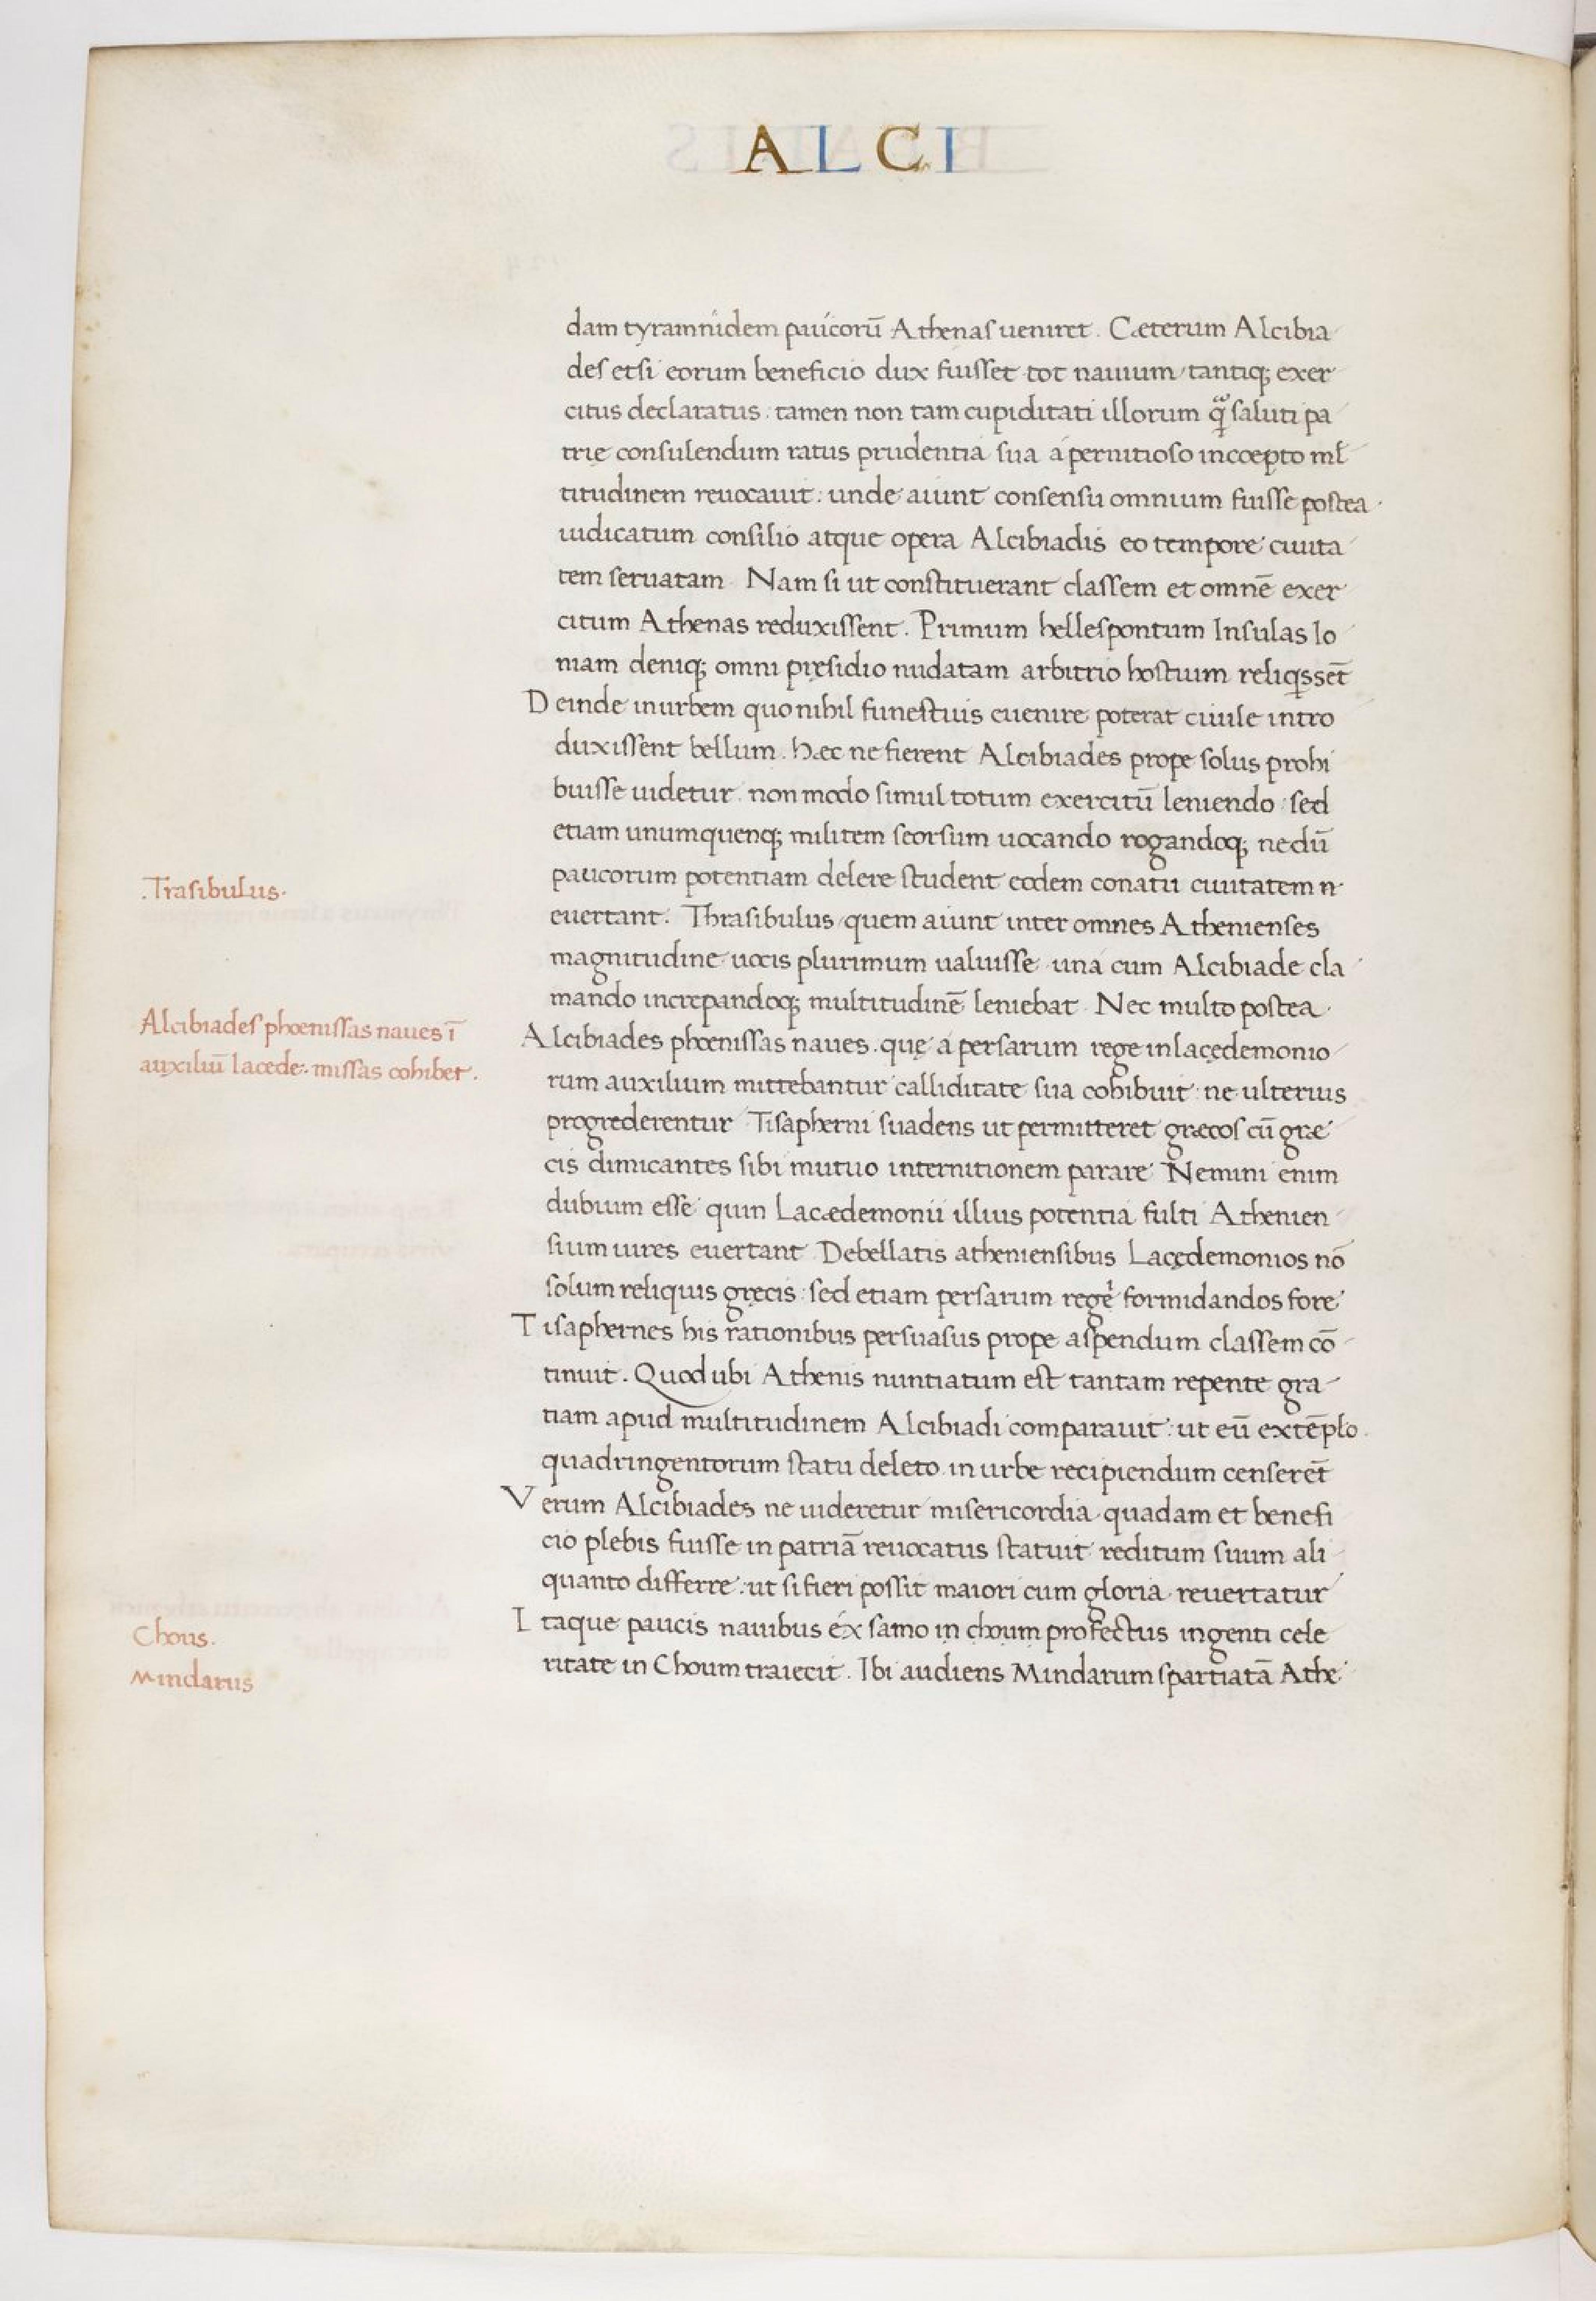 ALCI
dam tyramnidem paucorū Athenas ueniret. Cæterum Alcibia
des etsi eorum beneficio dux fuisset tot nauium tantiq; exer
citus declaratus: tamen non tam cupiditati illorum q̃ saluti pa
trię consulendum ratus prudentia sua a pernitioso incoepto ml̄
titudinem reuocauit: unde aiunt consensu omnium fuisse postea
iudicatum consilio atque opera Alcibiadis eo tempore ciuita
tem seruatam. Nam si ut constituerant classem et omnē exer
citum Athenas reduxissent. Primum hellespontum Insulas Io
niam deniq; omni pręsidio nudatam arbitrio hostium reliqissēt
Deinde in urbem quo nihil funestius euenire poterat ciuile intro
duxissent bellum. hæc ne fierent Alcibiades prope solus prohi
buisse uidetur. non modo simul totum exercitū leniendo: sed
etiam unumquenq; militem seorsum uocando rogandoq; ne dū
paucorum potentiam delere student eodem conatu ciuitatem n
.Trasibulus.
euertant. Thrasibulus quem aiunt inter omnes Athenienses
magnitudine uocis plurimum ualuisse una cum Alcibiade cla
mando increpandoq; multitudinē leniebat. Nec multo postea.
Alcibiades phœnissas naues ī
auxiliū lacede: missas cohibet.
Alcibiades phœnissas naues. quę a persarum rege in lacędemonio
rum auxilium mittebantur calliditate sua cohibuit: ne ulterius
progrederentur Tisapherni suadens ut permitteret græcos cū græ
cis dimicantes sibi mutuo internitionem parare Nemini enim
dubium esse quin Lacædemonii illius potentia fulti Athenien
sium uires euertant Debellatis atheniensibus Lacędemonios nō
solum reliquis gręcis: sed etiam persarum regē formidandos fore
Tisaphernes his rationibus persuasus prope aspendum classem cō
tinuit. Quod ubi Athenis nuntiatum est tantam repente gra
tiam apud multitudinem Alcibiadi comparauit: ut eū extēplo.
quadringentorum statu deleto in urbe recipiendum censerēt
Verum Alcibiades ne uideretur misericordia quadam et benefi
cio plebis fuisse in patriā reuocatus statuit reditum suum ali
quanto differre: ut si fieri possit maiori cum gloria reuertatur
Chous.
Mindarus
Itaque paucis nauibus ex samo in choum profectus ingenti cele
ritate in Choum traiecit. Ibi audiens Mindarum spartiatā Athe